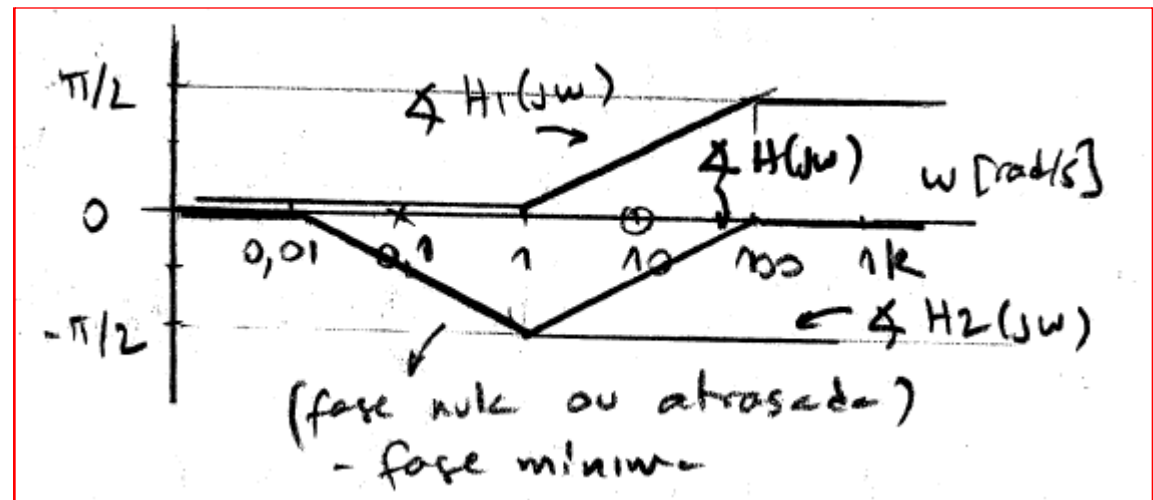 π/2
∡ H1(jw)
∡ H(jw)
w [rad/s]
0
0,01 0,1 1 10 100 1k
-π/2
∡ H2(jw)
(fase nula ou atrasada)
- fase mínima